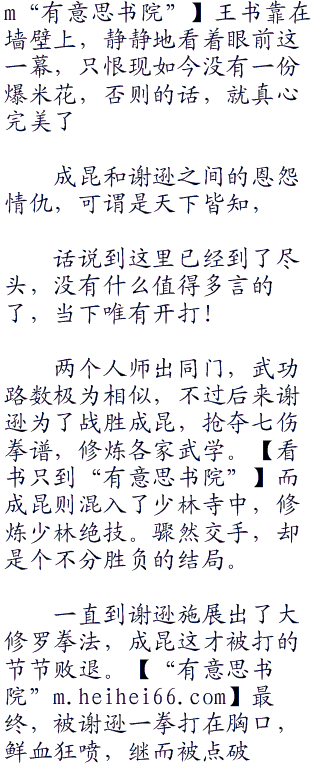 m“有意思书院”】王书靠在
墙壁上，静静地看着眼前这
一幕，只恨现如今没有一份
爆米花，否则的话，就真心
完美了
成昆和谢逊之间的恩怨
情仇，可谓是天下皆知，
话说到这里已经到了尽
头，没有什么值得多言的
了，当下唯有开打！
两个人师出同门，武功
路数极为相似，不过后来谢
逊为了战胜成昆，抢夺七伤
拳谱，修炼各家武学。【看
书只到“有意思书院”】而
成昆则混入了少林寺中，修
炼少林绝技。骤然交手，却
是个不分胜负的结局。
一直到谢逊施展出了大
修罗拳法，成昆这才被打的
节节败退。【“有意思书
院”m.heihei66.com】最
终，被谢逊一拳打在胸口，
鲜血狂喷，继而被点破